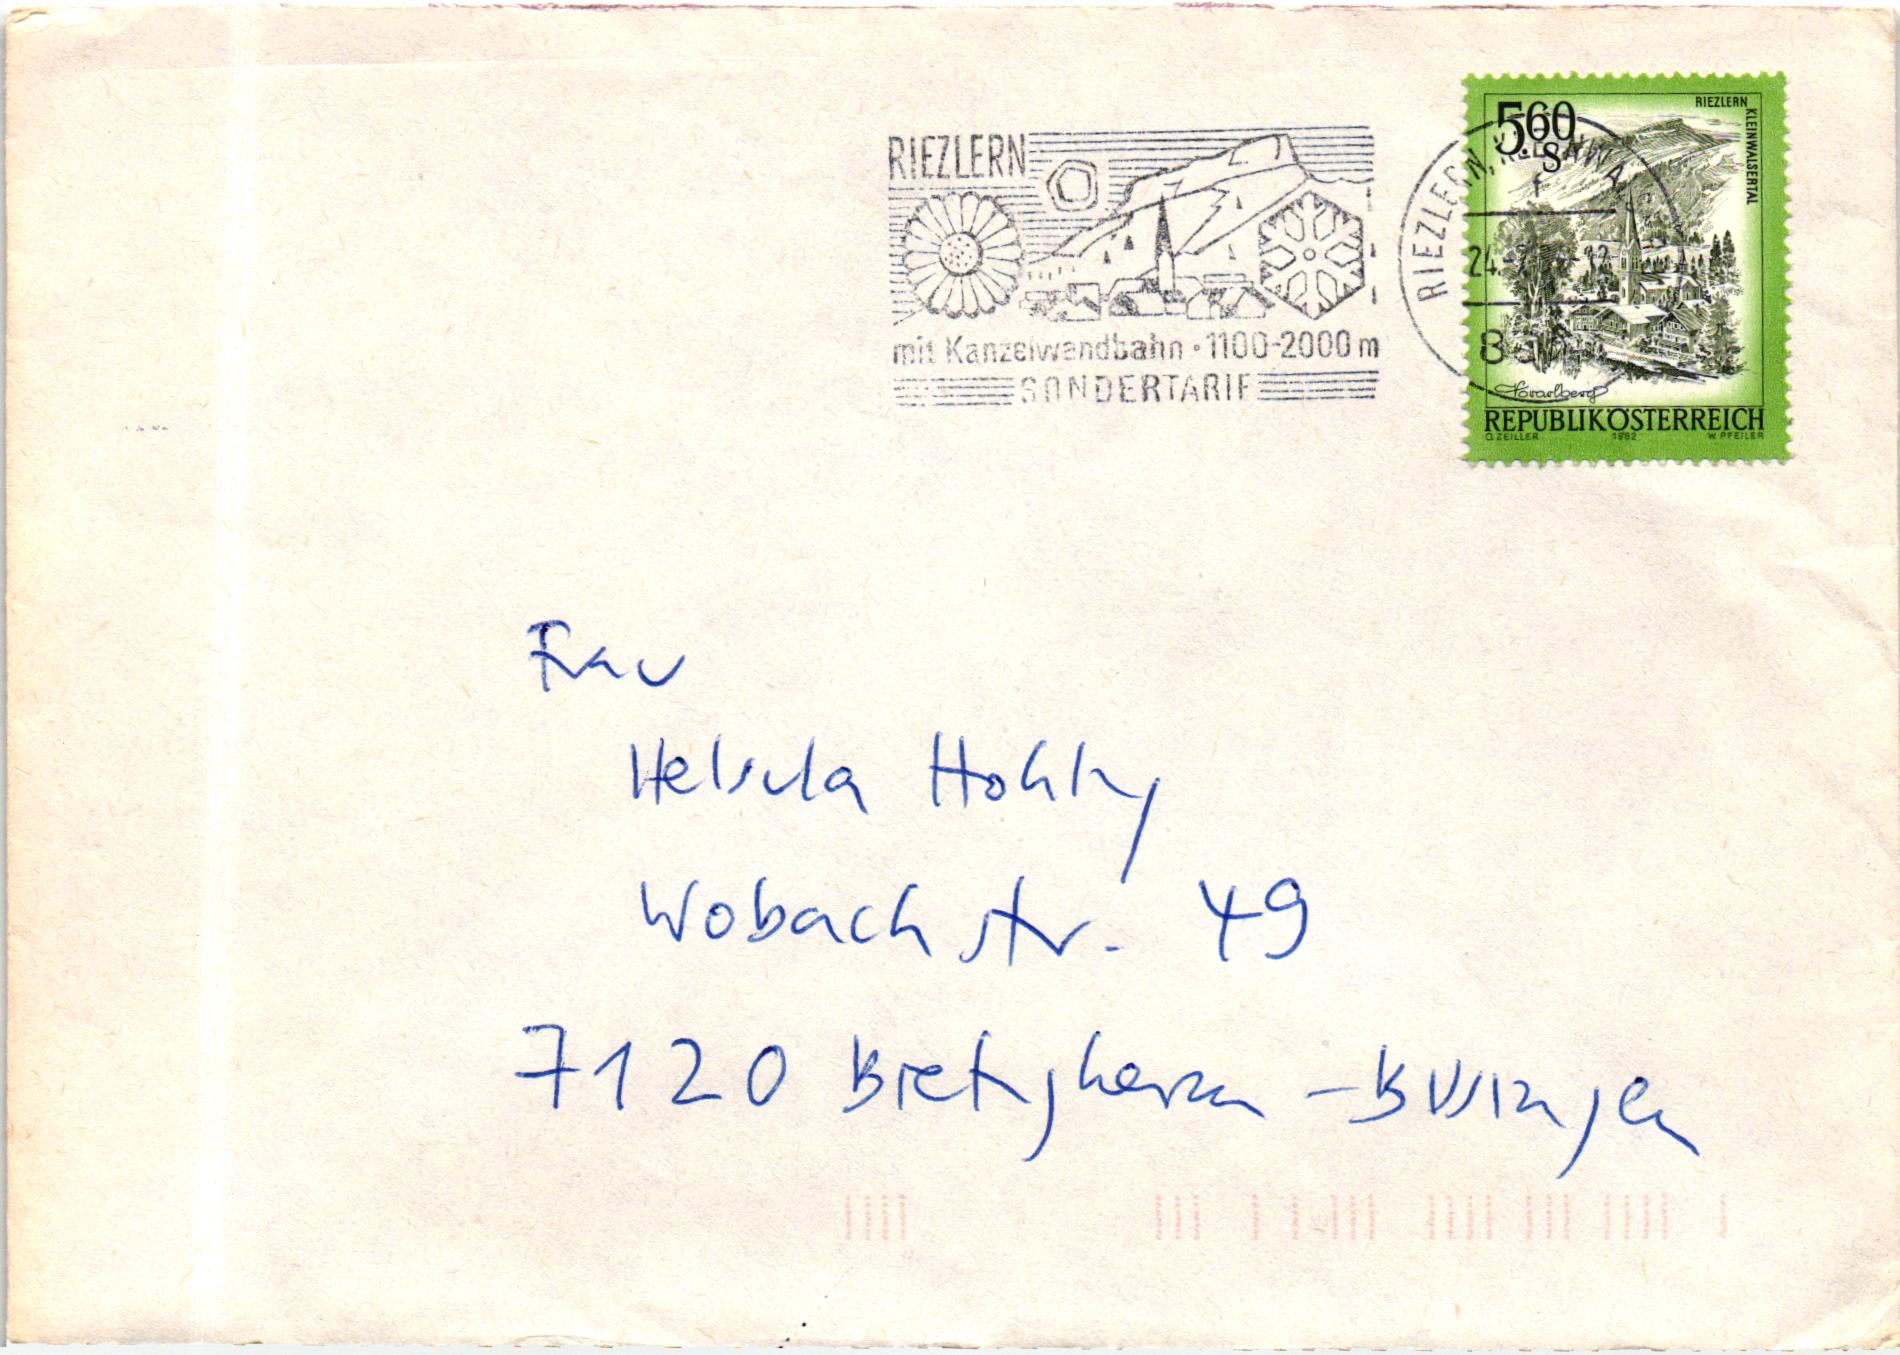 RIEZLERN
mit Kanzelwandbahn · 1100-2000 m
SONDERTARIF
RIEZLERN,
24.
5.60
S
RIEZLERN
KLEINWALSERTAL
Vorarlberg
REPUBLIK ÖSTERREICH
O. ZEILLER 1982 W. PFEILER
Frau
Wobachstr. 49
7120 Bietigheim - Bissingen